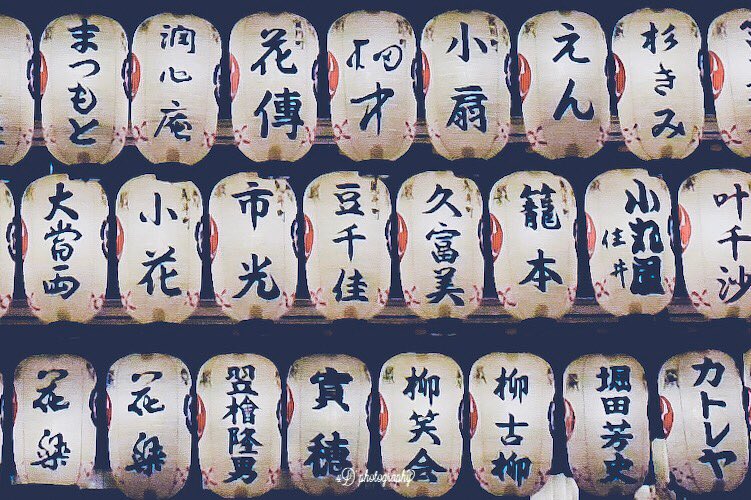 まつもと
潤心庵
花傳
小扇
えん
杉きみ
大當両
小花
市光
豆千佳
久富美
籠本
小丸園
佳井
叶千沙
花染
花染
翌檜隆男
實穂
柳笑会
柳古柳
堀田芳史
カトレヤ
D photography